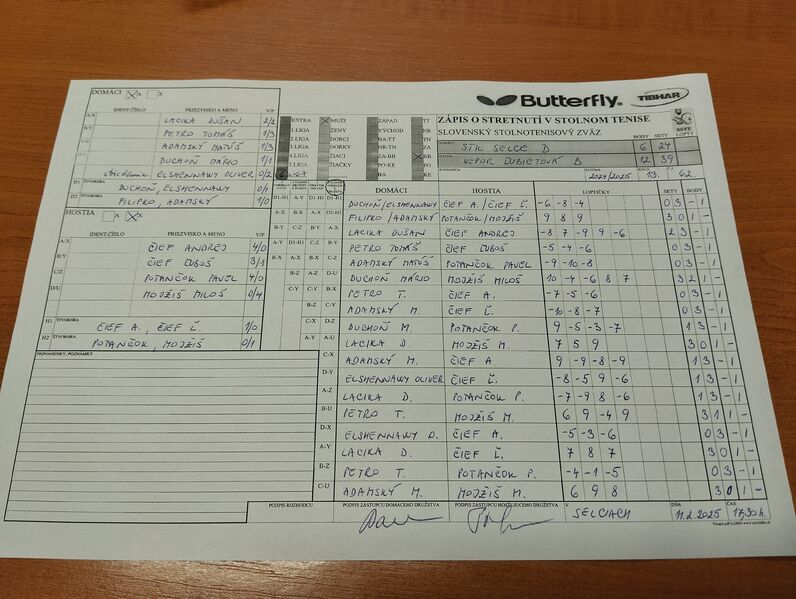 Butterfly. TIBHAR
DOMÁCI A
IDENT.ČÍSLO PRIEZVISKO A MENO V/P
A/X LACIKA DUŠAN 2/2
B/Y PETRO TOMÁŠ 1/3
ADAMSKÝ MATÚŠ 1/3
DUCHOŇ MÁRIO 1/1
striedanie ELSHENNAWY OLIVER 0/2
D1 ŠTVORHRA DUCHOŇ, ELSHENNAWY 0/1
D2 ŠTVORHRA FILIPKO, ADAMSKÝ 1/0
HOSTIA A X
IDENT.ČÍSLO PRIEZVISKO A MENO V/P
A/X ČIEF ANDREJ 4/0
B/Y ČIEF ĽUBOŠ 3/1
C/Z POTANČOK PAVEL 4/0
D/U MOJŽIŠ MILOŠ 0/4
H1 ŠTVORHRA ČIEF A., ČIEF Ľ. 1/0
H2 ŠTVORHRA POTANČOK, MOJŽIŠ 0/1
PRIPOMIENKY, POZNÁMKY
EXTRA MUŽI ZÁPAD TT
1.LIGA ŽENY VÝCHOD NR
2.LIGA DORCI BA-TT TN
3.LIGA DORKY NR-TN ZA
4.LIGA ŽIACI ZA-BB BB
5.LIGA ŽIAČKY PO-KE PO
LIGA BA KE
ZÁPIS O STRETNUTÍ V STOLNOM TENISE
SLOVENSKÝ STOLNOTENISOVÝ ZVÄZ
SSTZ
BODY SETY LOPTY
DOMÁCI STK SELCE D 6 24
HOSTIA VEPOR ĽUBIETOVÁ B 12 39
SEZÓNA 2024/2025 KOLO 13. 62
DOMÁCI HOSTIA LOPTIČKY SETY BODY
DUCHOŇ/ELSHENNAWY ČIEF A./ČIEF Ľ. -6 -8 -4 0 3 - 1
FILIPKO/ADAMSKÝ POTANČOK/MOJŽIŠ 9 8 9 3 0 1 -
LACIKA DUŠAN ČIEF ANDREJ -8 7 -9 9 -6 2 3 - 1
PETRO TOMÁŠ ČIEF ĽUBOŠ -5 -4 -6 0 3 - 1
ADAMSKÝ MATÚŠ POTANČOK PAVEL -9 -10 -8 0 3 - 1
DUCHOŇ MÁRIO MOJŽIŠ MILOŠ 10 -4 -6 8 7 3 2 1 -
PETRO T. ČIEF A. -7 -5 -6 0 3 - 1
ADAMSKÝ M. ČIEF Ľ. -10 -8 -7 0 3 - 1
DUCHOŇ M. POTANČOK P. 9 -5 -3 -7 1 3 - 1
LACIKA D. MOJŽIŠ M. 7 5 9 3 0 1 -
C-X ADAMSKÝ M. ČIEF A. 9 -9 -8 -9 1 3 - 1
D-Y ELSHENNAWY OLIVER ČIEF Ľ. -8 -5 9 -6 1 3 - 1
A-Z LACIKA D. POTANČOK P. -7 -9 8 -6 1 3 - 1
B-U PETRO T. MOJŽIŠ M. 6 9 -4 9 3 1 1 -
D-X ELSHENNAWY O. ČIEF A. -5 -3 -6 0 3 - 1
A-Y LACIKA D. ČIEF Ľ. 7 8 7 3 0 1 -
B-Z PETRO T. POTANČOK P. -4 -1 -5 0 3 - 1
C-U ADAMSKÝ M. MOJŽIŠ M. 6 9 8 3 0 1 -
PODPIS ROZHODCU PODPIS ZÁSTUPCU DOMÁCEHO DRUŽSTVA PODPIS ZÁSTUPCU HOSŤUJÚCEHO DRUŽSTVA V SELCIACH DŇA 11.2.2025 ČAS 17,30 h.